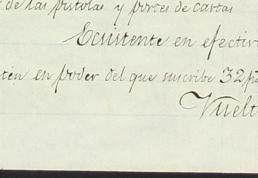 de las pistolas y portes de cartas
Existente en efectiv
ten en poder del que suscribe 32 p
Vuelt